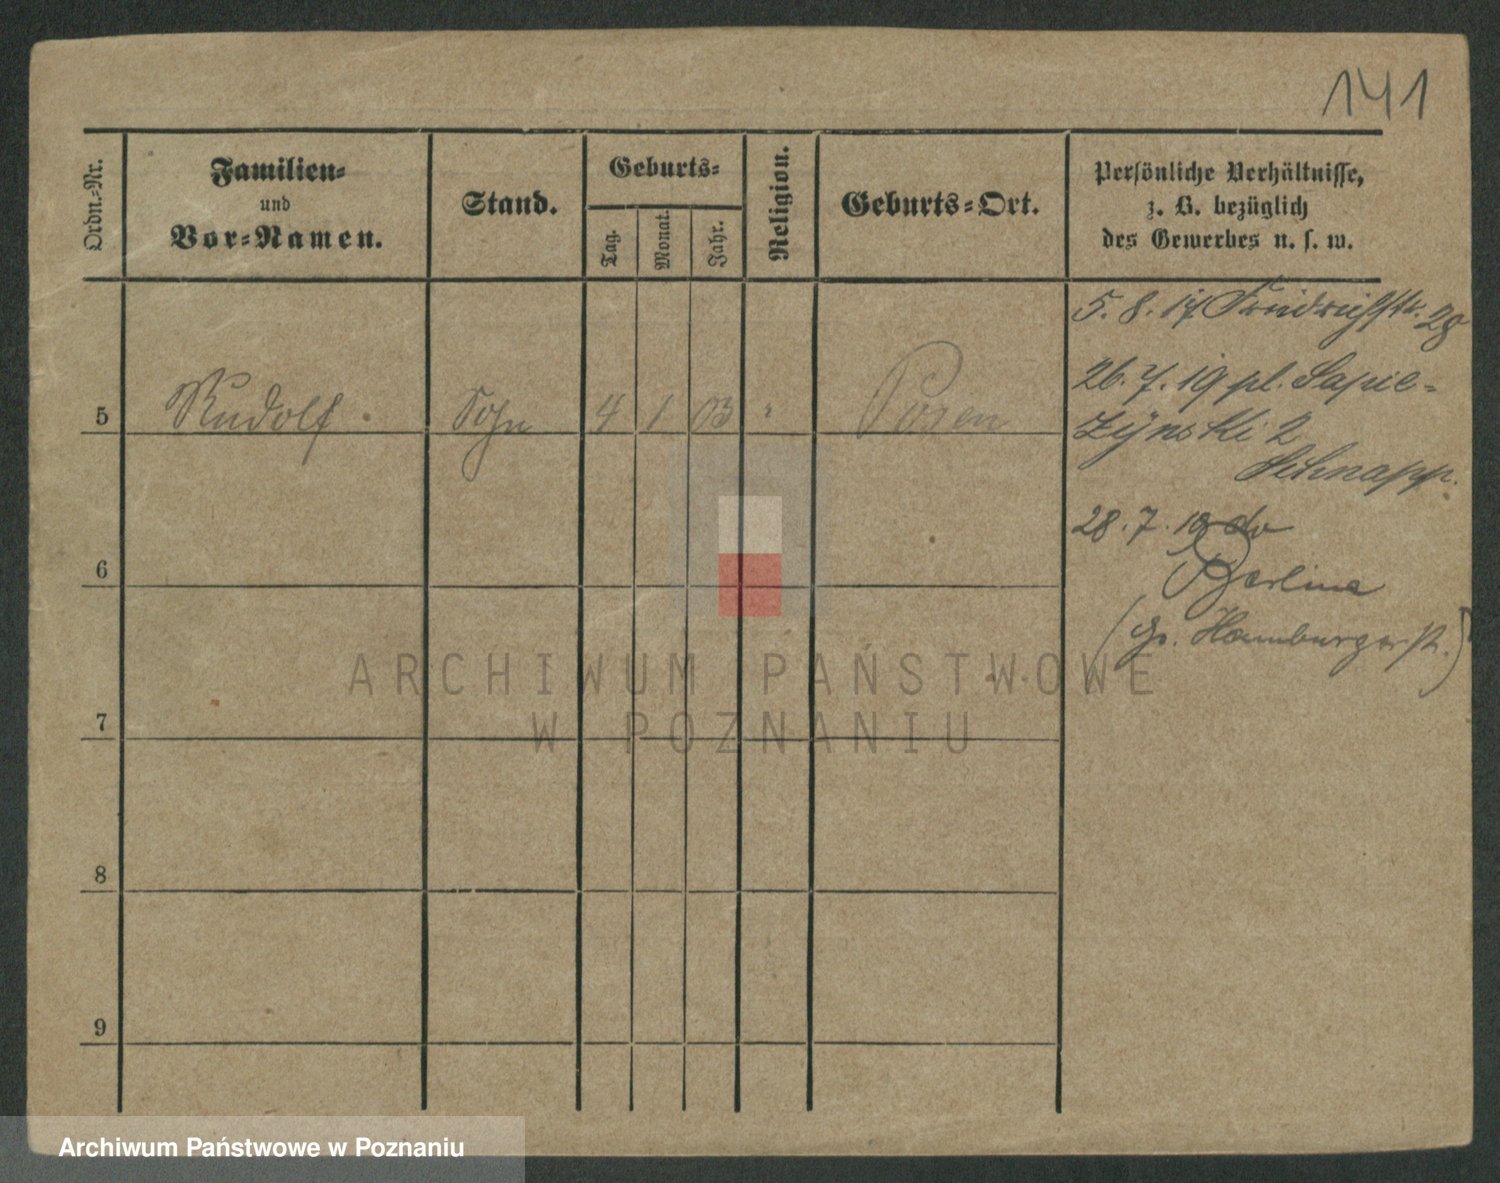 141
Ordn.-Nr.
Familien-
und
Vor-Namen.
Stand.
Geburts-
Tag.
Monat.
Jahr.
Religion.
Geburts-Ort.
Persönliche Verhältnisse,
z. B. bezüglich
des Gewerbes u. s. w.
5 Rudolf Sohn 4 1 03 " Posen
6
7
8
9
5. 8. 17 Friedrichstr. 28
26. 7. 19 pl. Sapie-
żyński 2
Schnapp.
28. 7. 19 do
Berlina
(Gr. Hamburgerst.)
ARCHIWUM PAŃSTWOWE
W POZNANIU
Archiwum Państwowe w Poznaniu